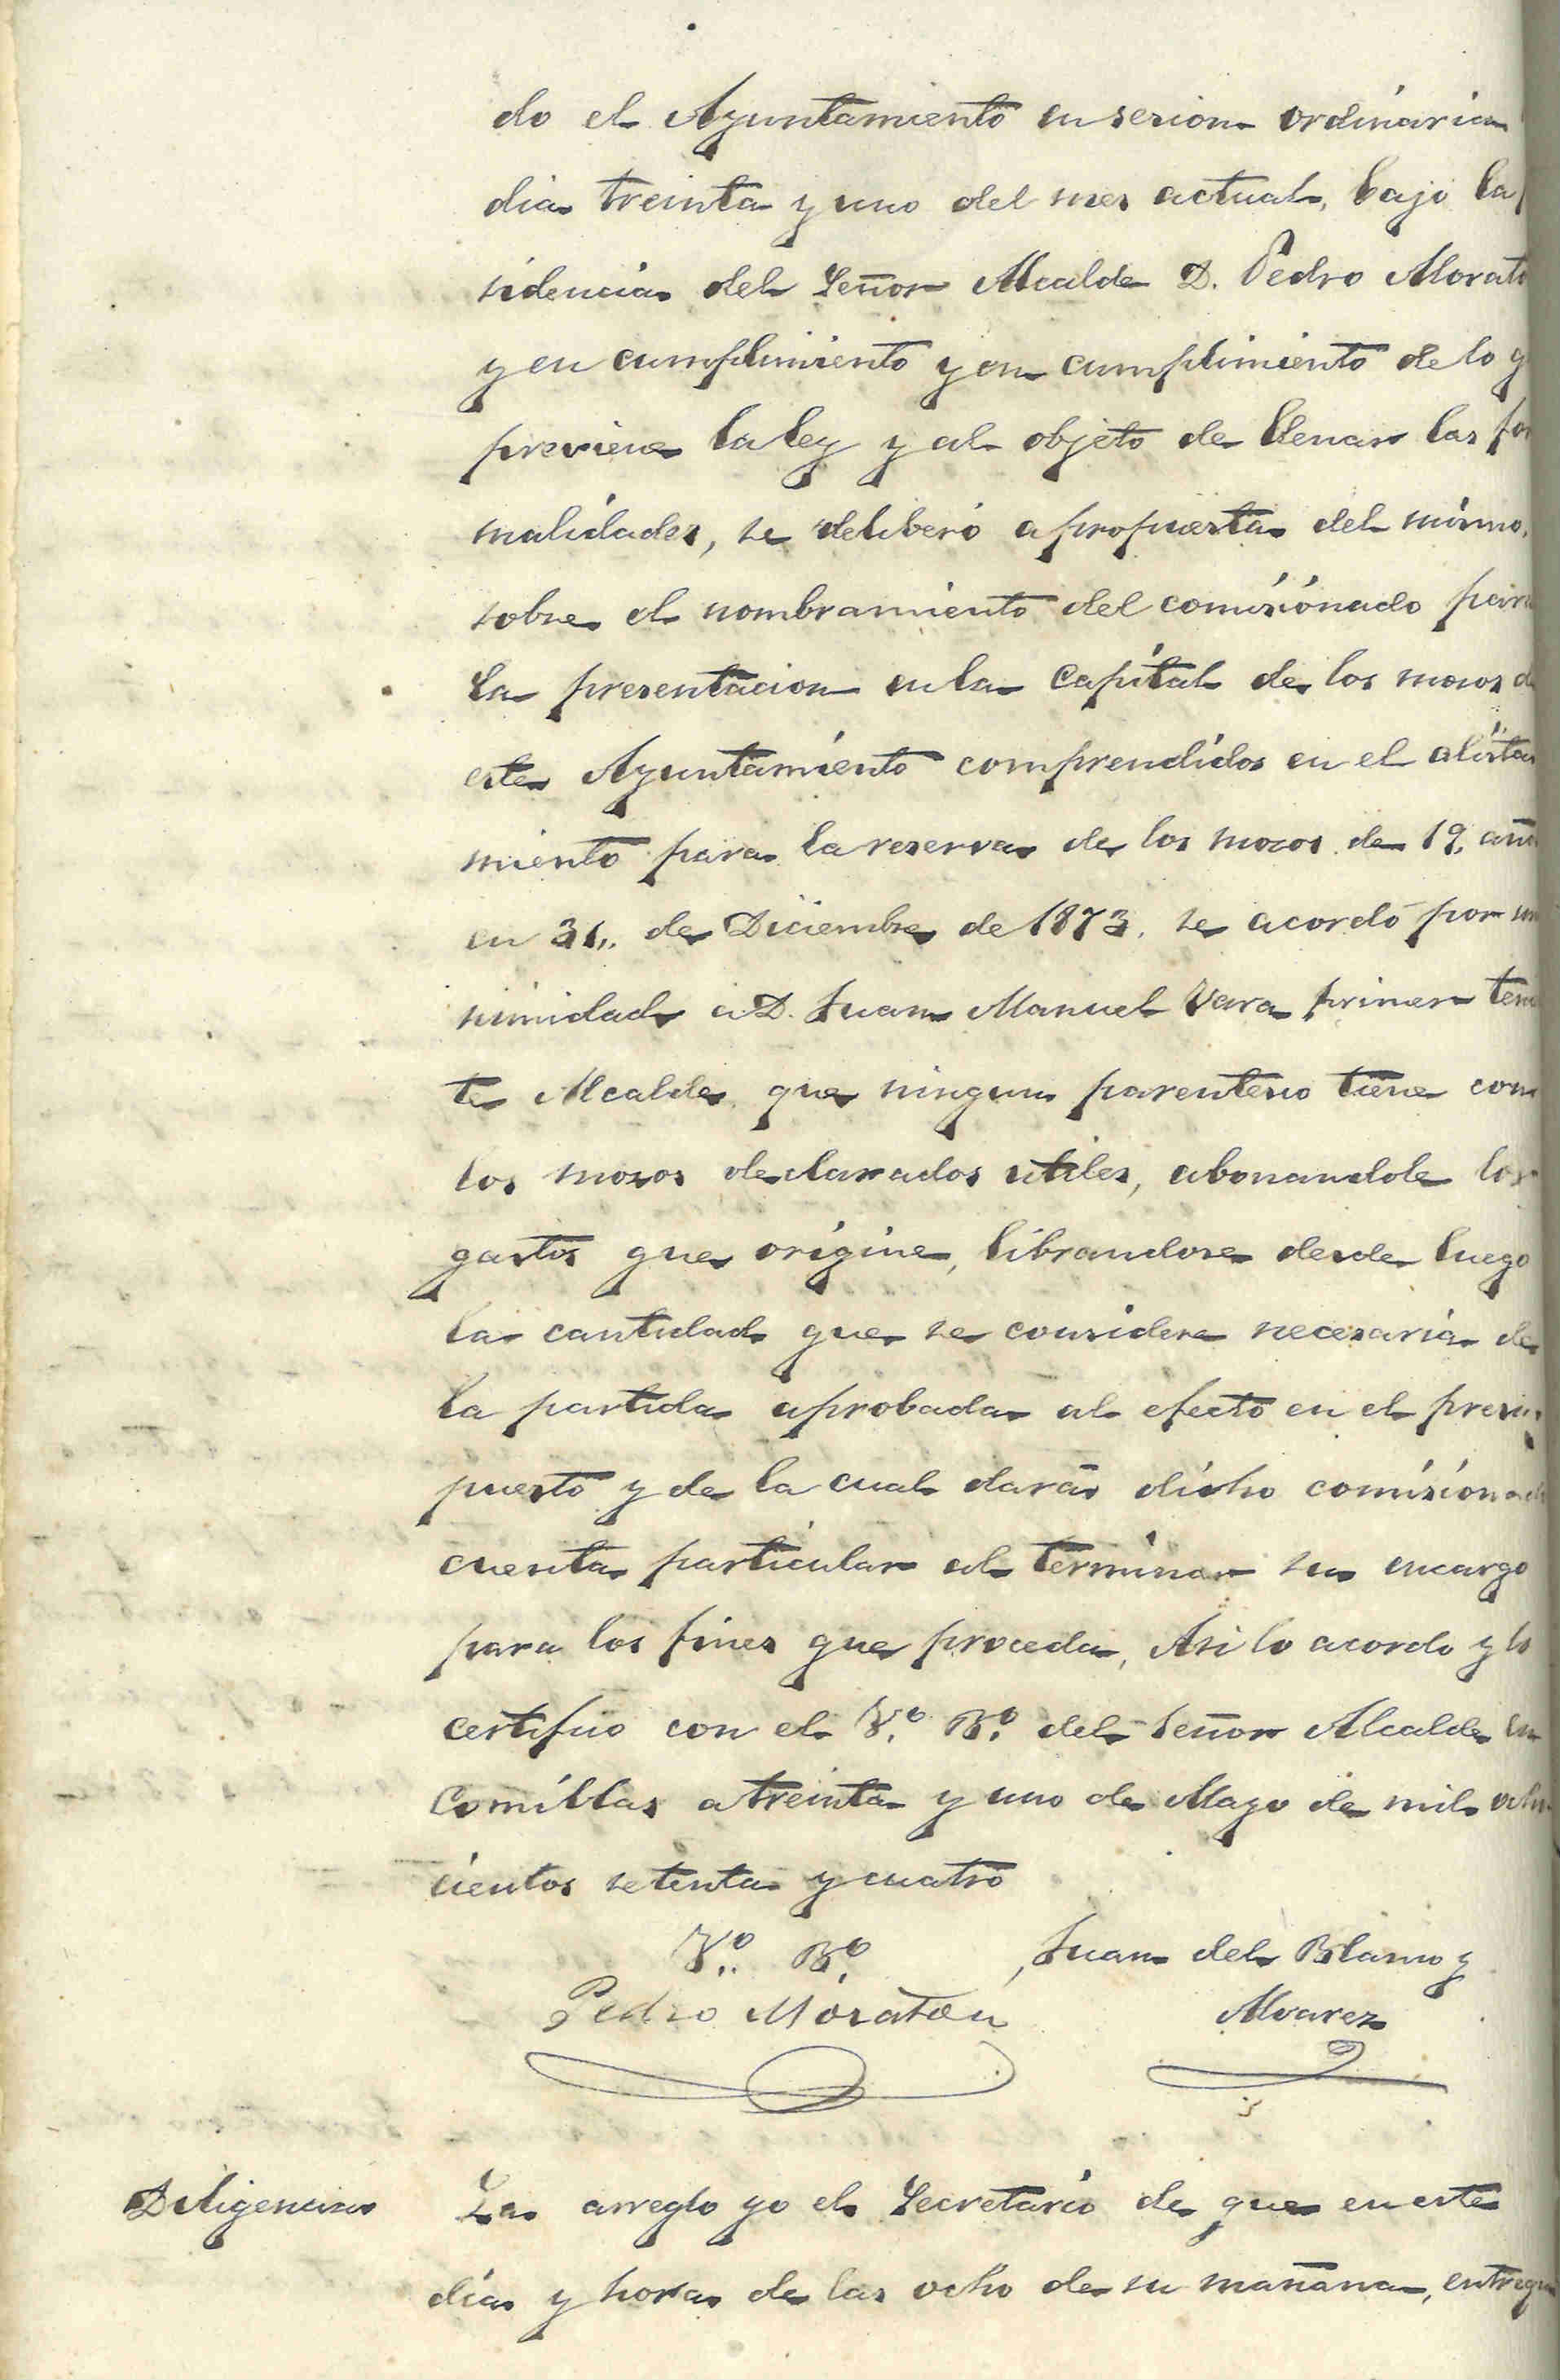 do el Ayuntamiento en sesion ordinaria
dia treinta y uno del mes actual, bajo la
sidencia del Señor Alcalde D. Pedro Morato
y en cumplimiento y en cumplimiento de lo q
previene la ley y al objeto de llenar las for
malidades, se deliberó a propuesta del mismo,
sobre el nombramiento del comisionado para
la presentacion en la capital de los mozos d
este Ayuntamiento comprendidos en el alista
miento para la reserva de los mozos de 19, año
en 31,, de Diciembre de 1873, se acordó por un
nimidad a D. Juan Manuel Vara primer teni
te Alcalde que ningun parentesco tiene con
los mozos declarados utiles, abonandole los
gastos que origine, librandose desde luego
la cantidad que se considere necesaria de
la partida aprobada al efecto en el presu
puesto y de la cual dará dicho comisionad
cuenta particular al terminar su encargo
para los fines que proceda, Asi lo acordo y lo
certifico con el V.º B.º del Señor Alcalde en
Comillas a treinta y uno de Mayo de mil ocho
cientos setenta y cuatro
V.º B.º Juan del Blanco y
Pedro Moraton Alvarez
Diligencia La arreglo yo el Secretario de que en este
dia y hora de las ocho de su mañana, entregu